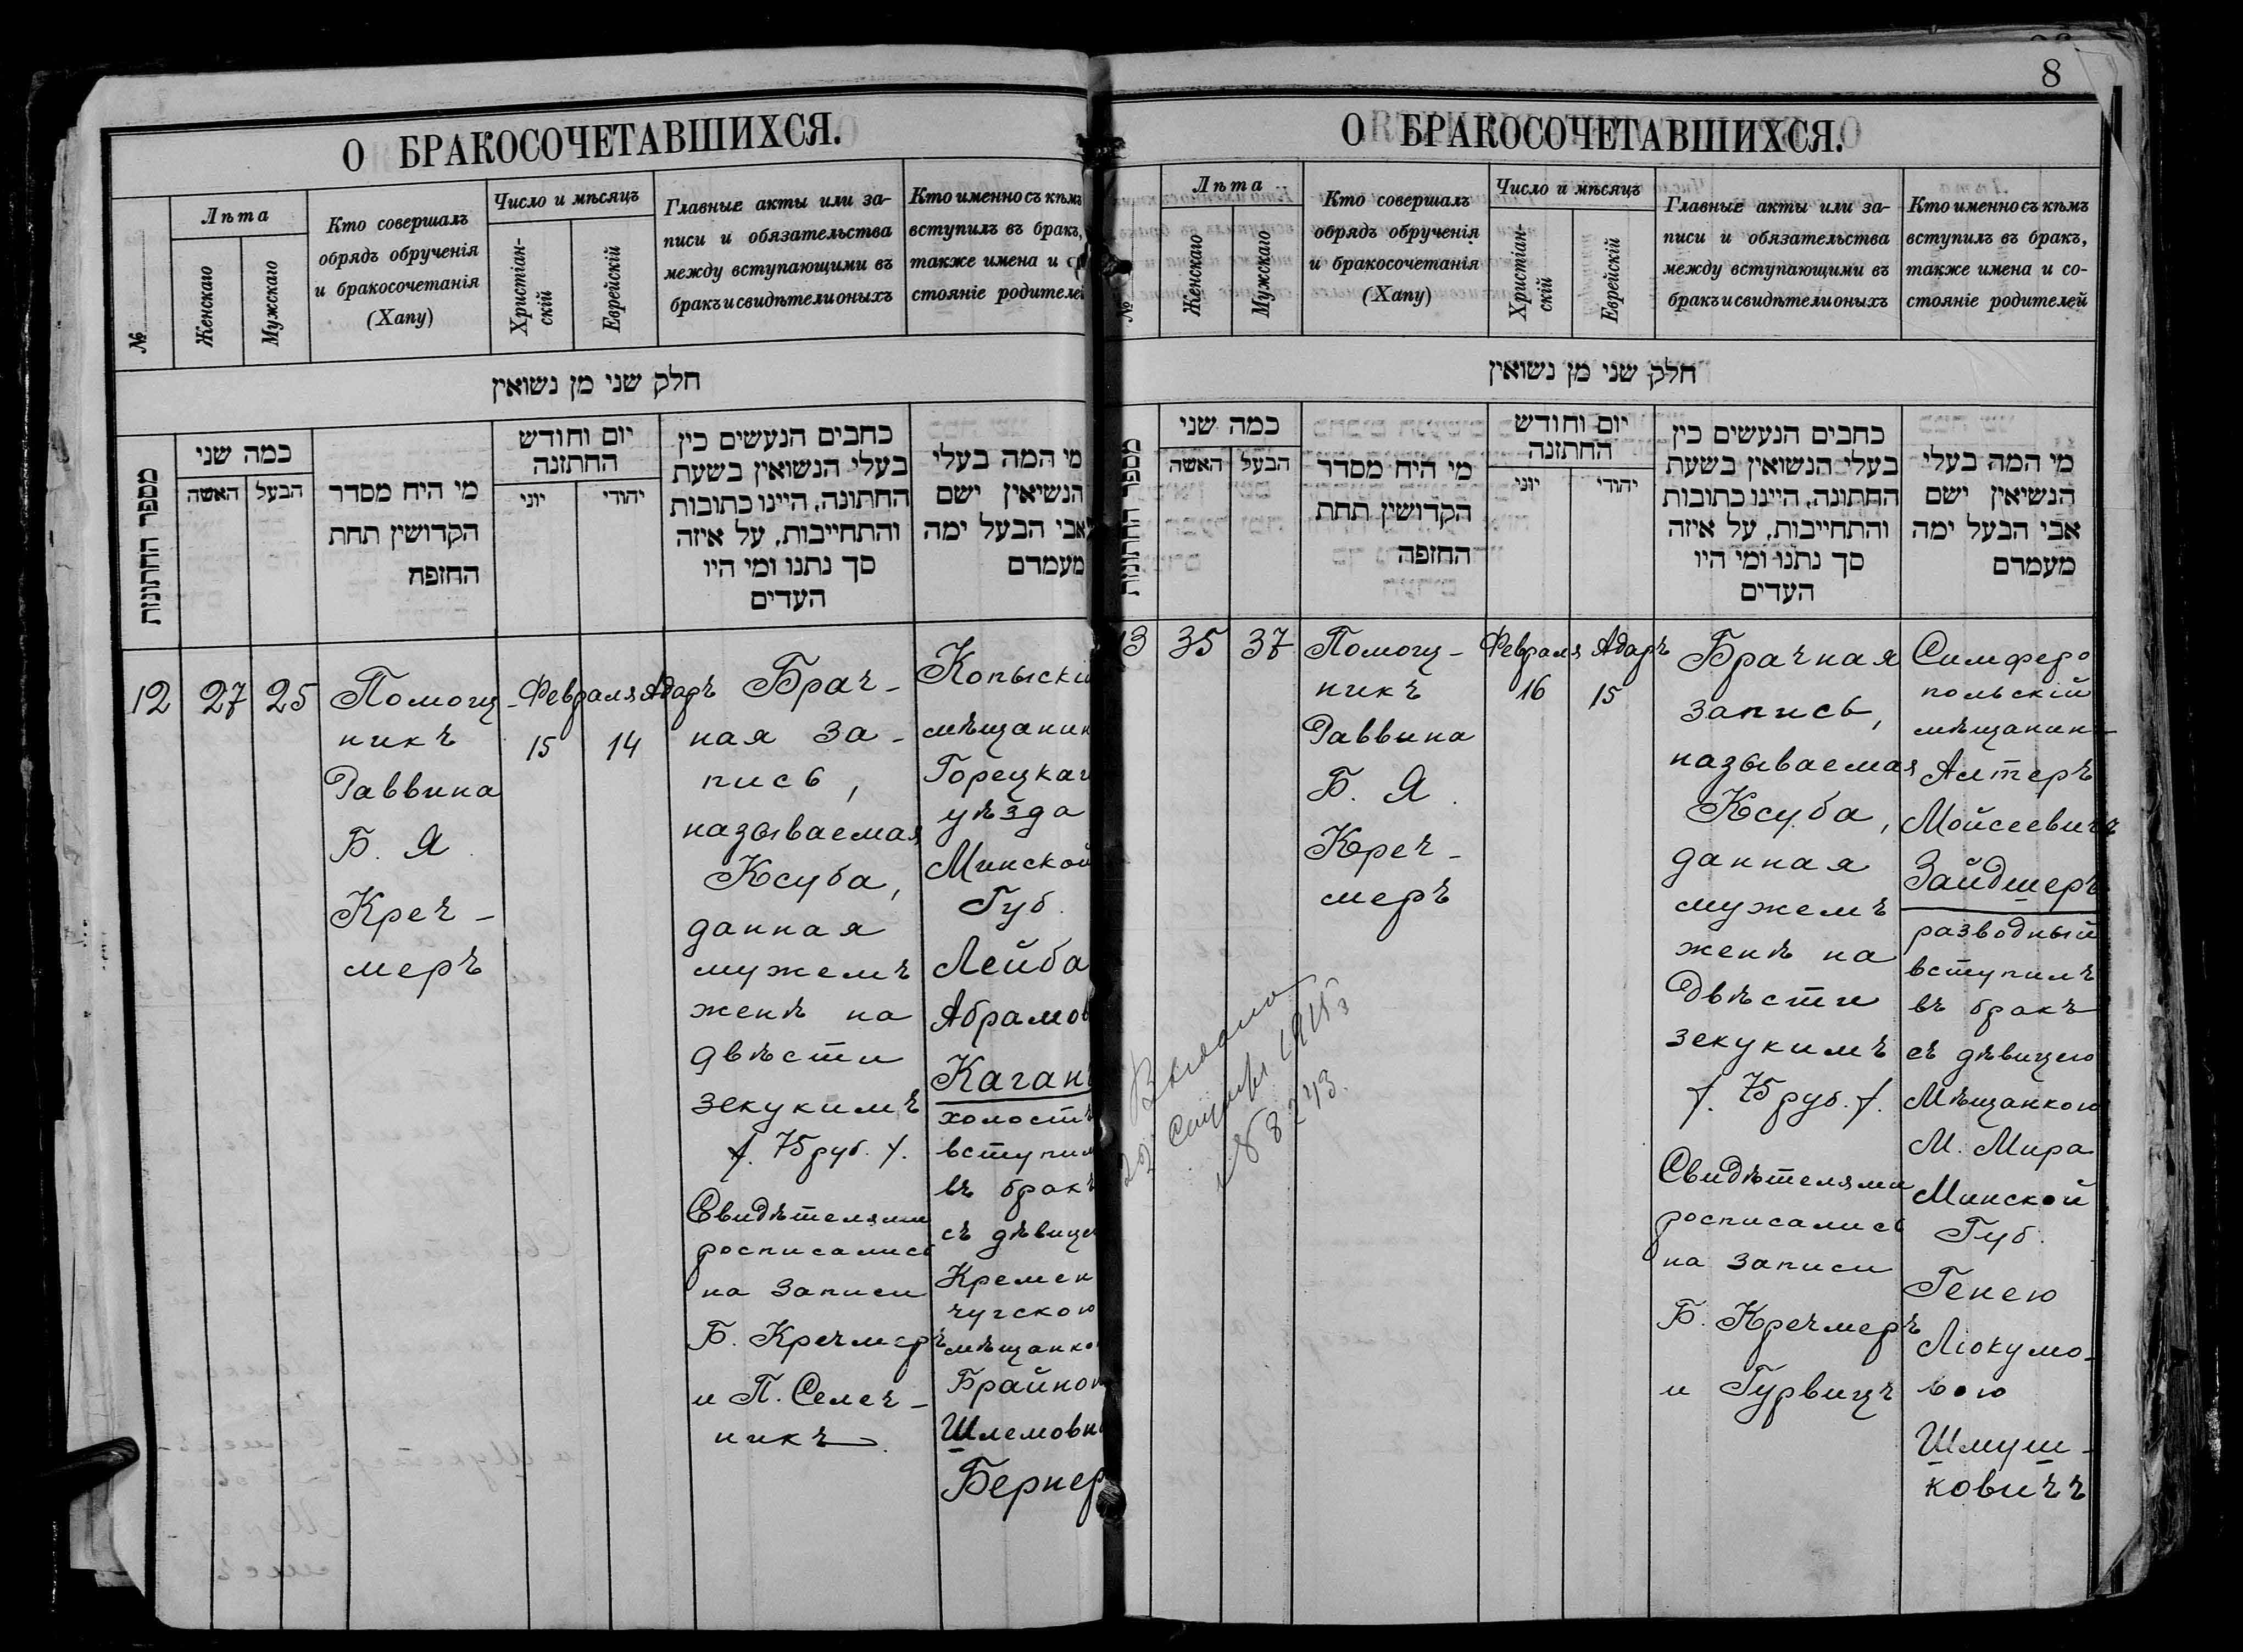 8
О БРАКОСОЧЕТАВШИХСЯ.
№
Лѣта
Женскаго
Мужскаго
Кто совершалъ
обрядъ обрученія
и бракосочетанія
(Хапу)
Число и мѣсяцъ
Христіан-
скій
Еврейскій
Главные акты или за-
писи и обязательства
между вступающими въ
бракъ и свидѣтели оныхъ
Кто именно съ кѣмъ
вступилъ въ бракъ,
также имена и
стояніе родителей
חלק שני מן נשואין
מספר החתונות
כמה שני
האשה
הבעל
מי היח מסדר
הקדושין תחת
החופה
יום וחודש
החתונה
יוני
יהודי
כתבים הנעשים בין
בעלי הנשואין בשעת
החתונה, היינו כתובות
והתחייבות, על איזה
סך נתנו ומי היו
העדים
מי המה בעלי
הנשיאין ישם
אבי הבעל ימה
מעמדם
12
27
25
Помощ-
никъ
Раввина
Б. Я.
Креч-
меръ
Февраля
15
Адаръ
14
Брач-
ная за-
пись,
называемая
Ксуба,
данная
мужемъ
женѣ на
двѣсти
зекукимъ
/. 75 руб. /.
Свидѣтелями
росписались
на записи
Б. Кречмеръ
и П. Селеч-
никъ.
Копыскій
мѣщанин
Горецкаг
уѣзда
Минской
Губ.
Лейба
Абрамов
Каганъ
холостъ
вступил
въ бракъ
съ дѣвицею
Кремен
чугскою
мѣщанко
Брайною
Шлемовн
Бернер
О БРАКОСОЧЕТАВШИХСЯ.
№
Лѣта
Женскаго
Мужскаго
Кто совершалъ
обрядъ обрученія
и бракосочетанія
(Хапу)
Число и мѣсяцъ
Христіан-
скій
Еврейскій
Главные акты или за-
писи и обязательства
между вступающими въ
бракъ и свидѣтели оныхъ
Кто именно съ кѣмъ
вступилъ въ бракъ,
также имена и со-
стояніе родителей
חלק שני מן נשואין
מספר החתונות
כמה שני
האשה
הבעל
מי היח מסדר
הקדושין תחת
החופה
יום וחודש
החתונה
יוני
יהודי
כתבים הנעשים בין
בעלי הנשואין בשעת
החתונה, היינו כתובות
והתחייבות, על איזה
סך נתנו ומי היו
העדים
מי המה בעלי
הנשיאין ישם
אבי הבעל ימה
מעמדם
13
35
37
Помощ-
никъ
Раввина
Б. Я.
Креч-
меръ
Февраля
16
Адаръ
15
Брачная
запись,
называемая
Ксуба,
данная
мужемъ
женѣ на
Двѣсти
зекукимъ
/. 75 руб. /.
Свидѣтелями
росписались
на записи
Б. Кречмеръ
и Гурвицъ
Симферо
польскій
мѣщанинъ
Алтеръ
Мойсеевичъ
Зайдшеръ
разводный
вступилъ
въ бракъ
съ дѣвицею
Мѣщанкою
М. Мира
Минской
Губ.
Генею
Люкумо-
вою
Шмуш-
ковичъ
1915 г
№ 8243.